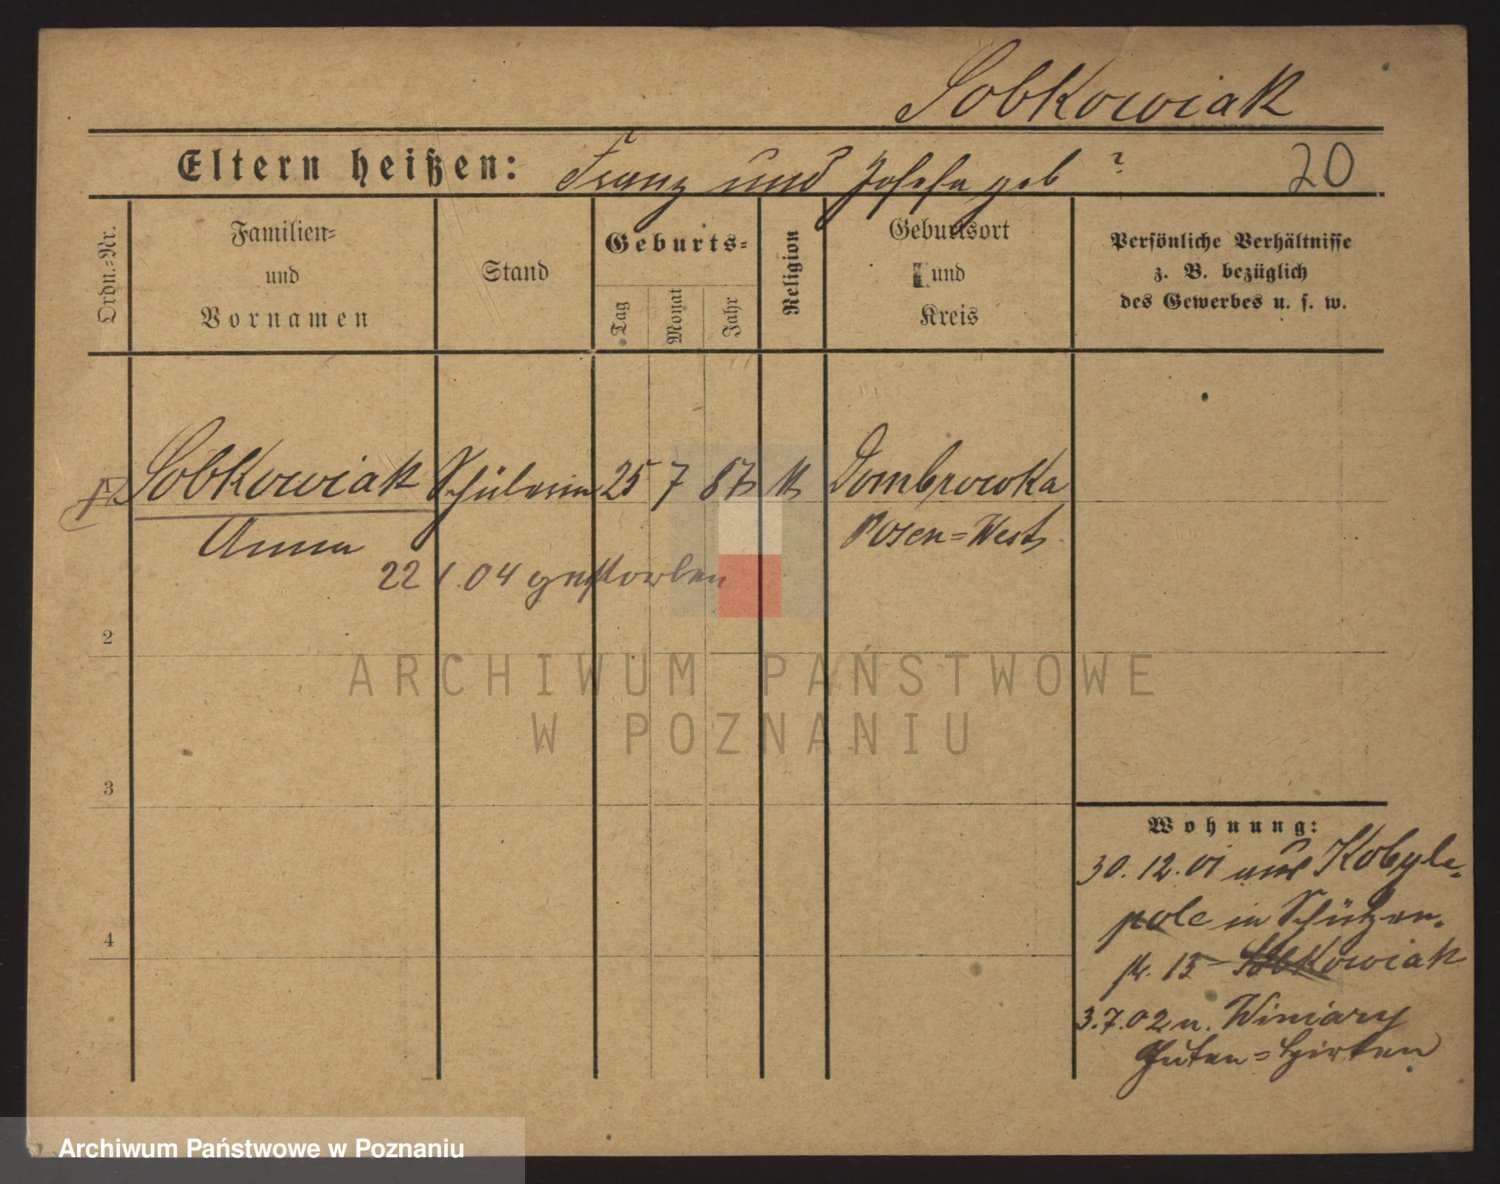 Sobkowiak
Eltern heißen: Franz und Josefa geb ? 20
Ordn.-Nr.
Familien-
und
Vornamen
Stand
Geburts-
Tag
Monat
Jahr
Religion
Geburtsort
und
Kreis
Persönliche Verhältnisse
z. B. bezüglich
des Gewerbes u. s. w.
Sobkowiak Schülerin 25 7 87 k Dombrowka
Anna Posen=West
22 1.04 gestorben
2
3
4
Wohnung:
30.12.01 aus Kobyle-
pole in Schützen-
str. 15 Sobkowiak
3.7.02 n. Winiary
Guten=
ARCHIWUM PAŃSTWOWE
W POZNANIU
Archiwum Państwowe w Poznaniu